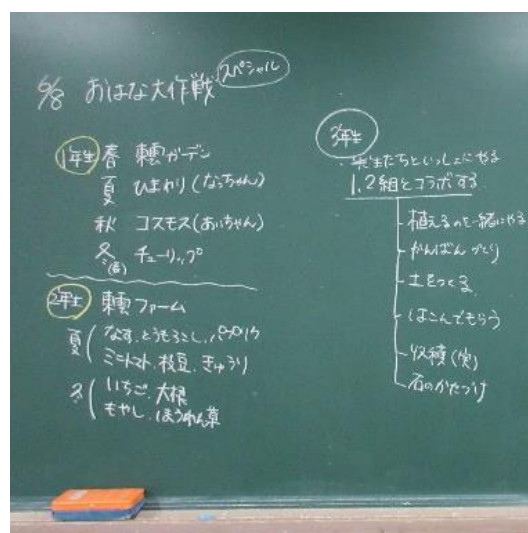 6/8 おはな大作戦 スペシャル
1年生 春 東雲ガーデン
夏 ひまわり(なっちゃん)
秋 コスモス(あいちゃん)
冬(春) チューリップ
2年生 東雲ファーム
夏 なす.とうもろこし.パプリカ
ミニトマト.枝豆.きゅうり
冬 いちご.大根
もやし.ほうれん草
3年生
・先生たちといっしょにやる
1.2組とコラボする
植えるのを一緒にやる
かんばんづくり
土をつくる
はこんでもらう
収穫(実)
石のかたづけ